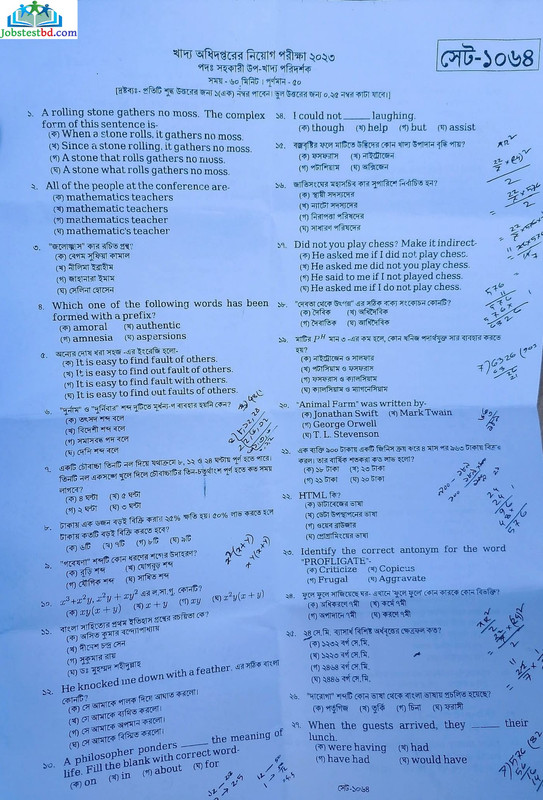 Jobstestbd.com
খাদ্য অধিদপ্তরের নিয়োগ পরীক্ষা ২০২৩
পদঃ সহকারী উপ-খাদ্য পরিদর্শক
সময় - ৬০ মিনিট । পূর্ণমান - ৫০
[দ্রষ্টব্যঃ- প্রতিটি শুদ্ধ উত্তরের জন্য ১(এক) নম্বর পাবেন। ভুল উত্তরের জন্য ০.২৫ নম্বর কাটা যাবে।]
সেট-১০৬৪
১. A rolling stone gathers no moss. The complex
form of this sentence is-
(ক) When a stone rolls, it gathers no moss.
(খ) Since a stone rolling, it gathers no moss.
(গ) A stone that rolls gathers no moss.
(ঘ) A stone what rolls gathers no moss.
২. All of the people at the conference are-
(ক) mathematics teachers
(খ) mathematic teachers
(গ) mathematics teacher
(ঘ) mathematic's teacher
৩. "জলোচ্ছ্বাস" কার রচিত গ্রন্থ?
(ক) বেগম সুফিয়া কামাল
(খ) নীলিমা ইব্রাহীম
(গ) জাহানারা ইমাম
(ঘ) সেলিনা হোসেন
৪. Which one of the following words has been
formed with a prefix?
(ক) amoral (খ) authentic
(গ) amnesia (ঘ) aspersions
৫. অন্যের দোষ ধরা সহজ -এর ইংরেজি হলো-
(ক) It is easy to find fault of others.
(খ) It is easy to find out fault of others.
(গ) It is easy to find fault with others.
(ঘ) It is easy to find out faults of others.
৬. "দুর্নাম" ও "দুর্নিবার" শব্দ দুটিতে মূর্ধন্য-ণ ব্যবহার হয়নি কেন?
(ক) তৎসম শব্দ বলে
(খ) বিদেশী শব্দ বলে
(গ) সমাসবদ্ধ পদ বলে
(ঘ) দেশি শব্দ বলে
৭. একটি চৌবাচ্চা তিনটি নল দিয়ে যথাক্রমে ৮, ১২ ও ২৪ ঘণ্টায় পূর্ণ হতে পারে।
তিনটি নল একসঙ্গে খুলে দিলে চৌবাচ্চাটির তিন-চতুর্থাংশ পূর্ণ হতে কত সময়
লাগবে?
(ক) ৪ ঘণ্টা (খ) ৫ ঘণ্টা
(গ) ২ ঘণ্টা (ঘ) ৩ ঘণ্টা
৮. টাকায় এক ডজন বড়ই বিক্রি করায় ২৫% ক্ষতি হয়। ৫০% লাভ করতে হলে
টাকায় কতটি বড়ই বিক্রি করতে হবে?
(ক) ৬টি (খ) ৭টি (গ) ৮টি (ঘ) ৯টি
৯. "গবেষণা" শব্দটি কোন ধরণের শব্দের উদাহরণ?
(ক) রূঢ়ি শব্দ (খ) যোগরূঢ় শব্দ
(গ) যৌগিক শব্দ (ঘ) সাধিত শব্দ
১০. x³+x²y, x²y + xy² এর ল.সা.গু. কোনটি?
(ক) xy(x + y) (খ) x + y (গ) xy (ঘ) x²y(x + y)
১১. বাংলা সাহিত্যের প্রথম ইতিহাস গ্রন্থের রচয়িতা কে?
(ক) অসিত কুমার বন্দ্যোপাধ্যায়
(খ) দীনেশ চন্দ্র সেন
(গ) সুকুমার রায়
(ঘ) ডঃ মুহম্মদ শহীদুল্লাহ
১২. He knocked me down with a feather. এর সঠিক বাংলা
কোনটি?
(ক) সে আমাকে পালক দিয়ে আঘাত করলো।
(খ) সে আমাকে ব্যথিত করলো।
(গ) সে আমাকে অপমান করলো।
(ঘ) সে আমাকে বিস্মিত করলো।
১৩. A philosopher ponders _____ the meaning of
life. Fill the blank with correct word-
(ক) on (খ) in (গ) about (ঘ) for
১৪. I could not _____ laughing.
(ক) though (খ) help (গ) but (ঘ) assist
১৫. বজ্রবৃষ্টির ফলে মাটিতে উদ্ভিদের কোন খাদ্য উপাদান বৃদ্ধি পায়?
(ক) ফসফরাস (খ) নাইট্রোজেন
(গ) পটাশিয়াম (ঘ) অক্সিজেন
১৬. জাতিসংঘের মহাসচিব কার সুপারিশে নির্বাচিত হন?
(ক) স্থায়ী সদস্যদের
(খ) ন্যাটো সদস্যদের
(গ) নিরাপত্তা পরিষদের
(ঘ) সাধারণ পরিষদের
১৭. Did not you play chess? Make it indirect-
(ক) He asked me if I did not play chess.
(খ) He asked me did not you play chess.
(গ) He said to me if I not played chess.
(ঘ) He asked me if I had not played chess.
১৮. "দেবতা থেকে উৎপন্ন" এর সঠিক বাক্য সংকোচন কোনটি?
(ক) দৈবিক (খ) অধিদৈবিক
(গ) দৈবাতিক (ঘ) আধিদৈবিক
১৯. মাটির Pᴴ মান ৩ -এর কম হলে, কোন খনিজ পদার্থযুক্ত সার ব্যবহার করতে
হয়?
(ক) নাইট্রোজেন ও সালফার
(খ) পটাসিয়াম ও ফসফরাস
(গ) ফসফরাস ও ক্যালসিয়াম
(ঘ) ক্যালসিয়াম ও ম্যাগনেসিয়াম
২০. "Animal Farm" was written by-
(ক) Jonathan Swift (খ) Mark Twain
(গ) George Orwell
(ঘ) T. L. Stevenson
২১. এক ব্যক্তি ৯০০ টাকায় একটি জিনিস ক্রয় করে ৪ মাস পর ৯৬৩ টাকায় বিক্রয়
করল। তার বার্ষিক শতকরা কত লাভ হলো?
(ক) ১৮ টাকা (খ) ২৩ টাকা
(গ) ২১ টাকা (ঘ) ২০ টাকা
২২. HTML কি?
(ক) ডাটাবেজের ভাষা
(খ) ডেটা উপস্থাপনের ভাষা
(গ) ওয়েব ব্রাউজার
(ঘ) প্রোগ্রামিংয়ের ভাষা
২৩. Identify the correct antonym for the word
"PROFLIGATE"-
(ক) Criticize (খ) Copicus
(গ) Frugal (ঘ) Aggravate
২৪. ফুলে ফুলে সাজিয়েছে ঘর- এখানে 'ফুলে ফুলে' কোন কারকে কোন বিভক্তি?
(ক) অধিকরণে ৭মী (খ) কর্মে ৭মী
(গ) অপাদানে ৭মী (ঘ) করণে ৭মী
২৫. ২৪ সে.মি. ব্যাসার্ধ বিশিষ্ট অর্ধবৃত্তের ক্ষেত্রফল কত?
(ক) ১২৩২ বর্গ সে.মি.
(খ) ১২২৩ বর্গ সে.মি.
(গ) ২৪৬৪ বর্গ সে.মি.
(ঘ) ২৪৪৬ বর্গ সে.মি.
২৬. "দারোগা" শব্দটি কোন ভাষা থেকে বাংলা ভাষায় প্রচলিত হয়েছে?
(ক) পর্তুগিজ (খ) তুর্কি (গ) চিনা (ঘ) ফরাসী
২৭. When the guests arrived, they _____ their
lunch.
(ক) were having (খ) had
(গ) have had (ঘ) would have
সেট-১০৬৪